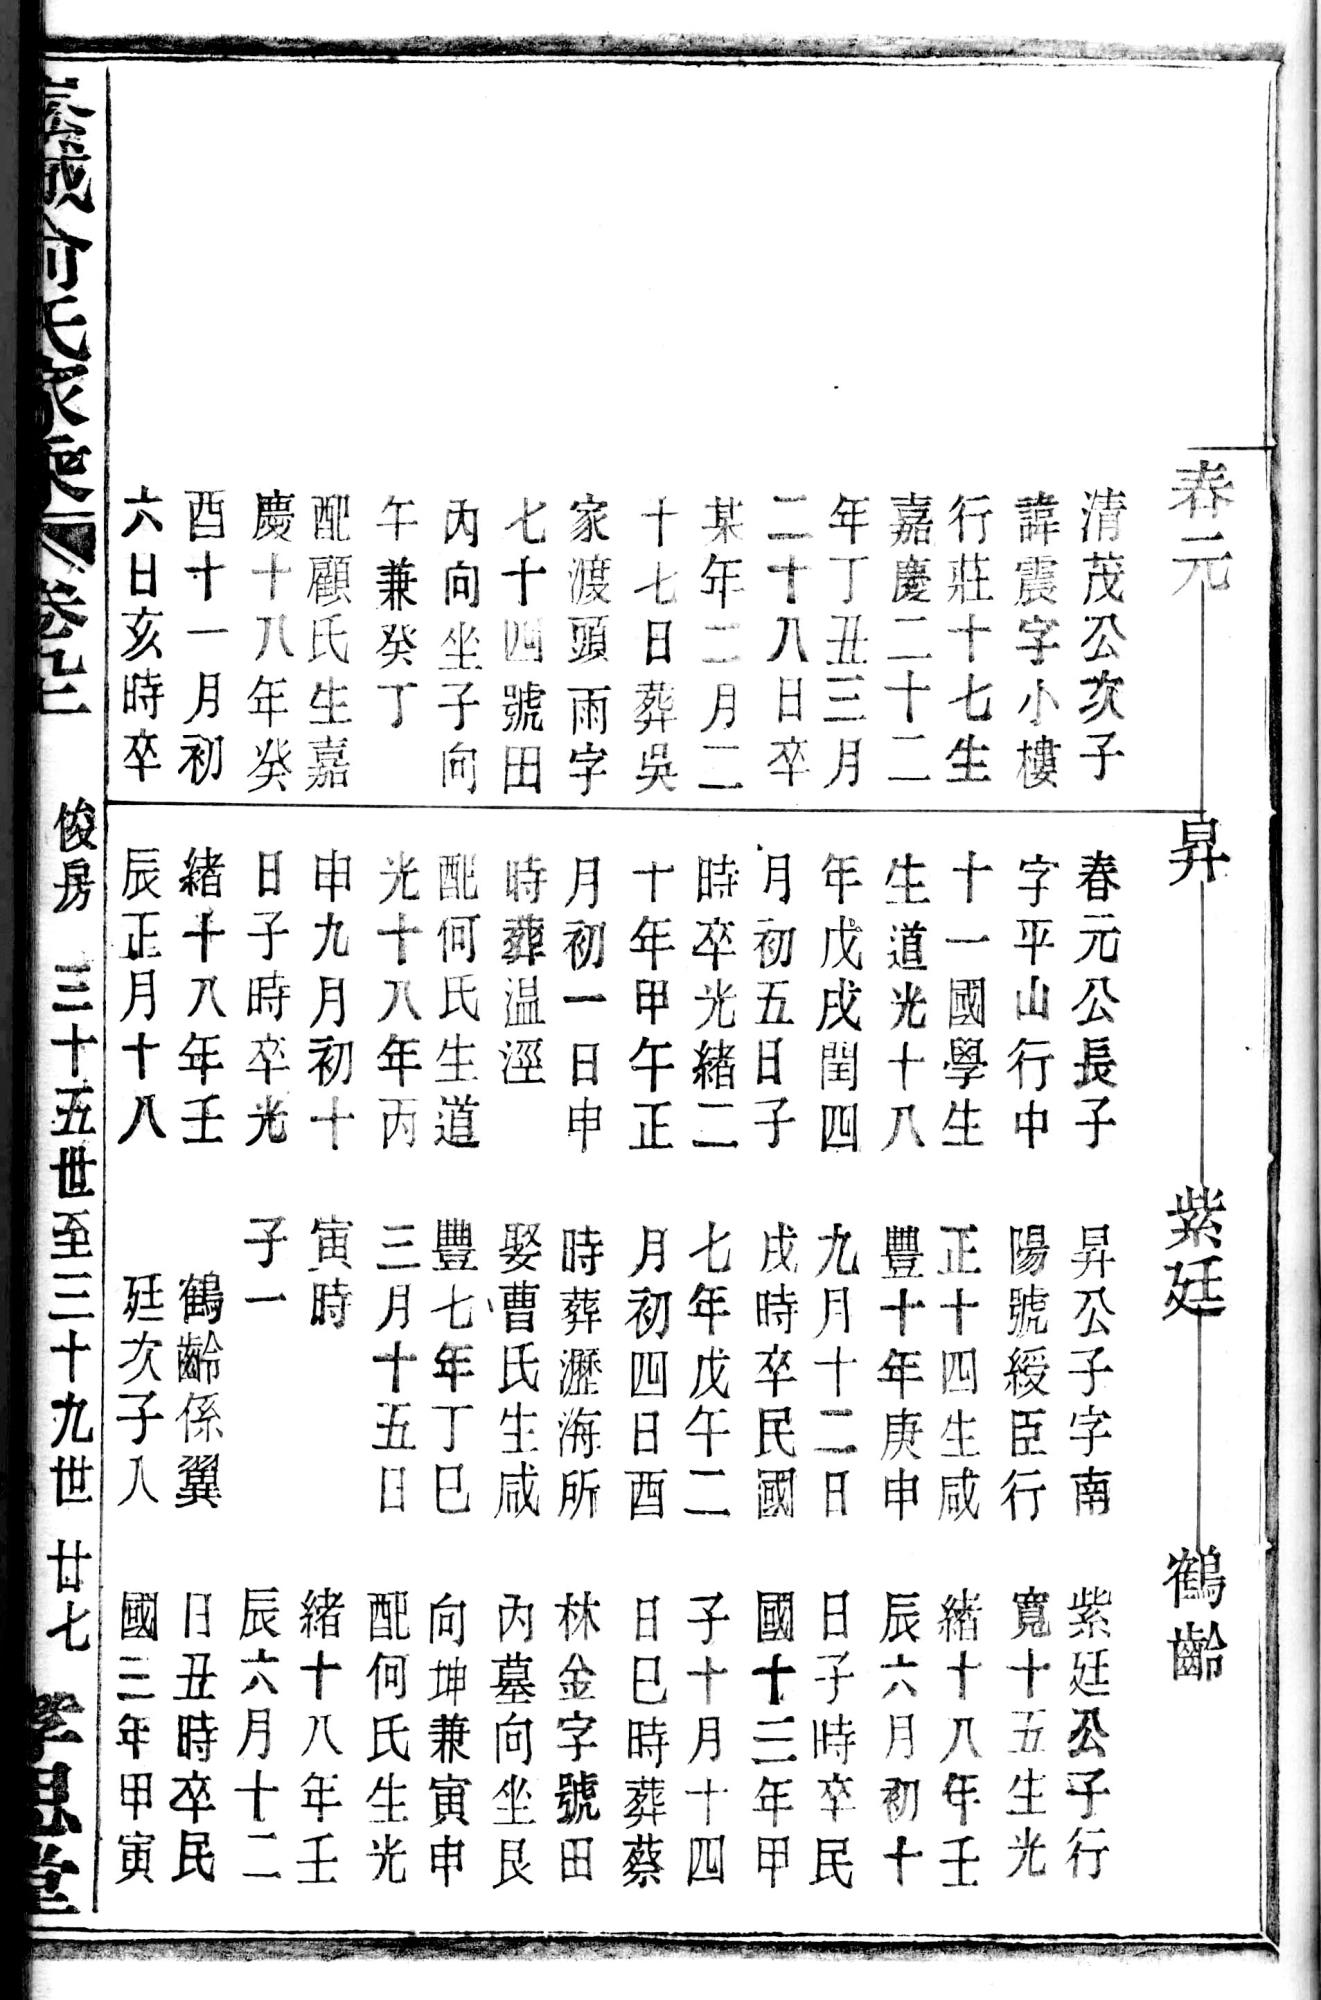 春元
清茂公次子
諱震字小樓
行莊十七生
嘉慶二十二
年丁丑三月
二十八日卒
某年二月二
十七日葬吳
家渡頭雨字
七十四號田
丙向坐子向
午兼癸丁
配顧氏生嘉
慶十八年癸
酉十一月初
六日亥時卒
昇
春元公長子
字平山行中
十一國學生
生道光十八
年戊戌閏四
月初五日子
時卒光緒二
十年甲午正
月初一日申
時葬温涇
配何氏生道
光十八年丙
申九月初十
日子時卒光
緒十八年壬
辰正月十八
紫廷
昇公子字南
陽號綬臣行
正十四生咸
豐十年庚申
九月十二日
戌時卒民國
七年戊午二
月初四日酉
時葬瀝海所
娶曹氏生咸
豐七年丁巳
三月十五日
寅時
子一
鶴齡係翼
廷次子入
鶴齡
紫廷公子行
寬十五生光
緒十八年壬
辰六月初十
日子時卒民
國十三年甲
子十月十四
日巳時葬蔡
林金字號田
内墓向坐艮
向坤兼寅申
配何氏生光
緒十八年壬
辰六月十二
日丑時卒民
國三年甲寅
俞氏家乘 卷
俊房 三十五世至三十九世 廿七 孝思堂